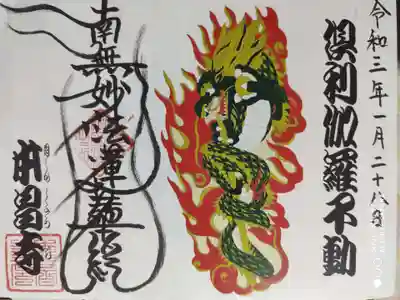 令和三年一月二十八日
倶利伽羅不動
南無妙法蓮華経